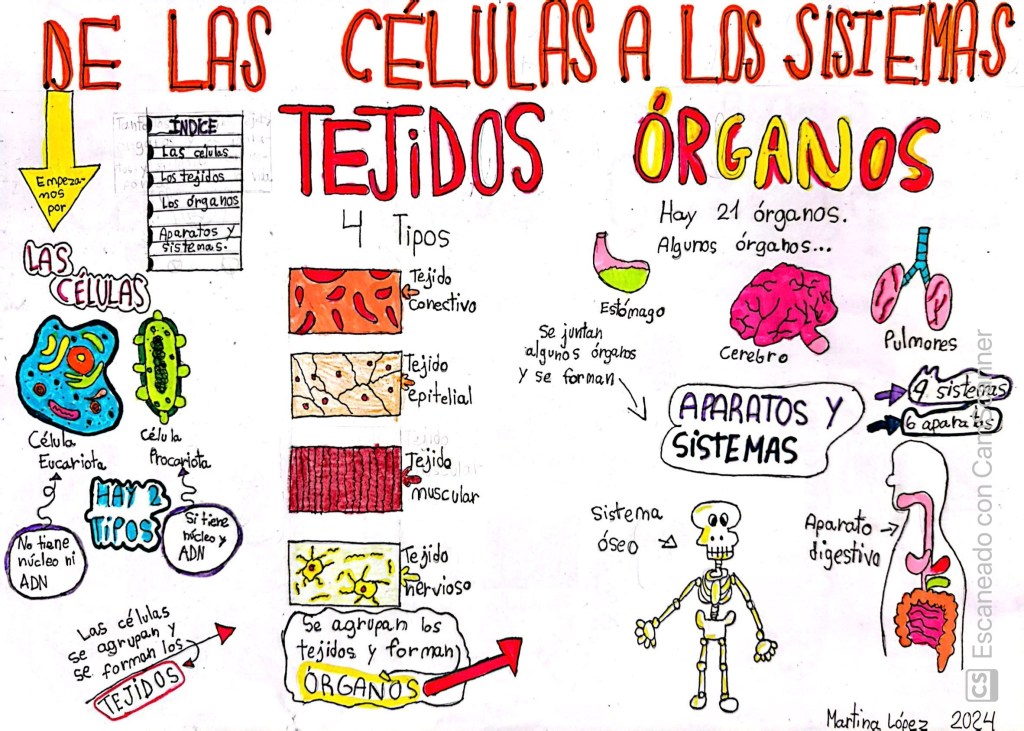 DE LAS CÉLULAS A LOS SISTEMAS
Empeza-
mos
por
ÍNDICE
Las células
Los tejidos
Los órganos
Aparatos y
sistemas.
LAS
CÉLULAS
Célula
Eucariota
Célula
Procariota
HAY 2
TIPOS
No tiene
núcleo ni
ADN
Si tiene
núcleo y
ADN
Las células
se agrupan y
se forman los
TEJIDOS
TEJIDOS
4 Tipos
Tejido
conectivo
Tejido
epitelial
Tejido
muscular
Tejido
nervioso
Se agrupan los
tejidos y forman
ÓRGANOS
ÓRGANOS
Hay 21 órganos.
Algunos órganos...
Estómago
Cerebro
Pulmones
Se juntan
algunos órganos
y se forman
APARATOS Y
SISTEMAS
9 sistemas
6 aparatos
Sistema
óseo
Aparato
digestivo
Martina López 2024
CS Escaneado con CamScanner